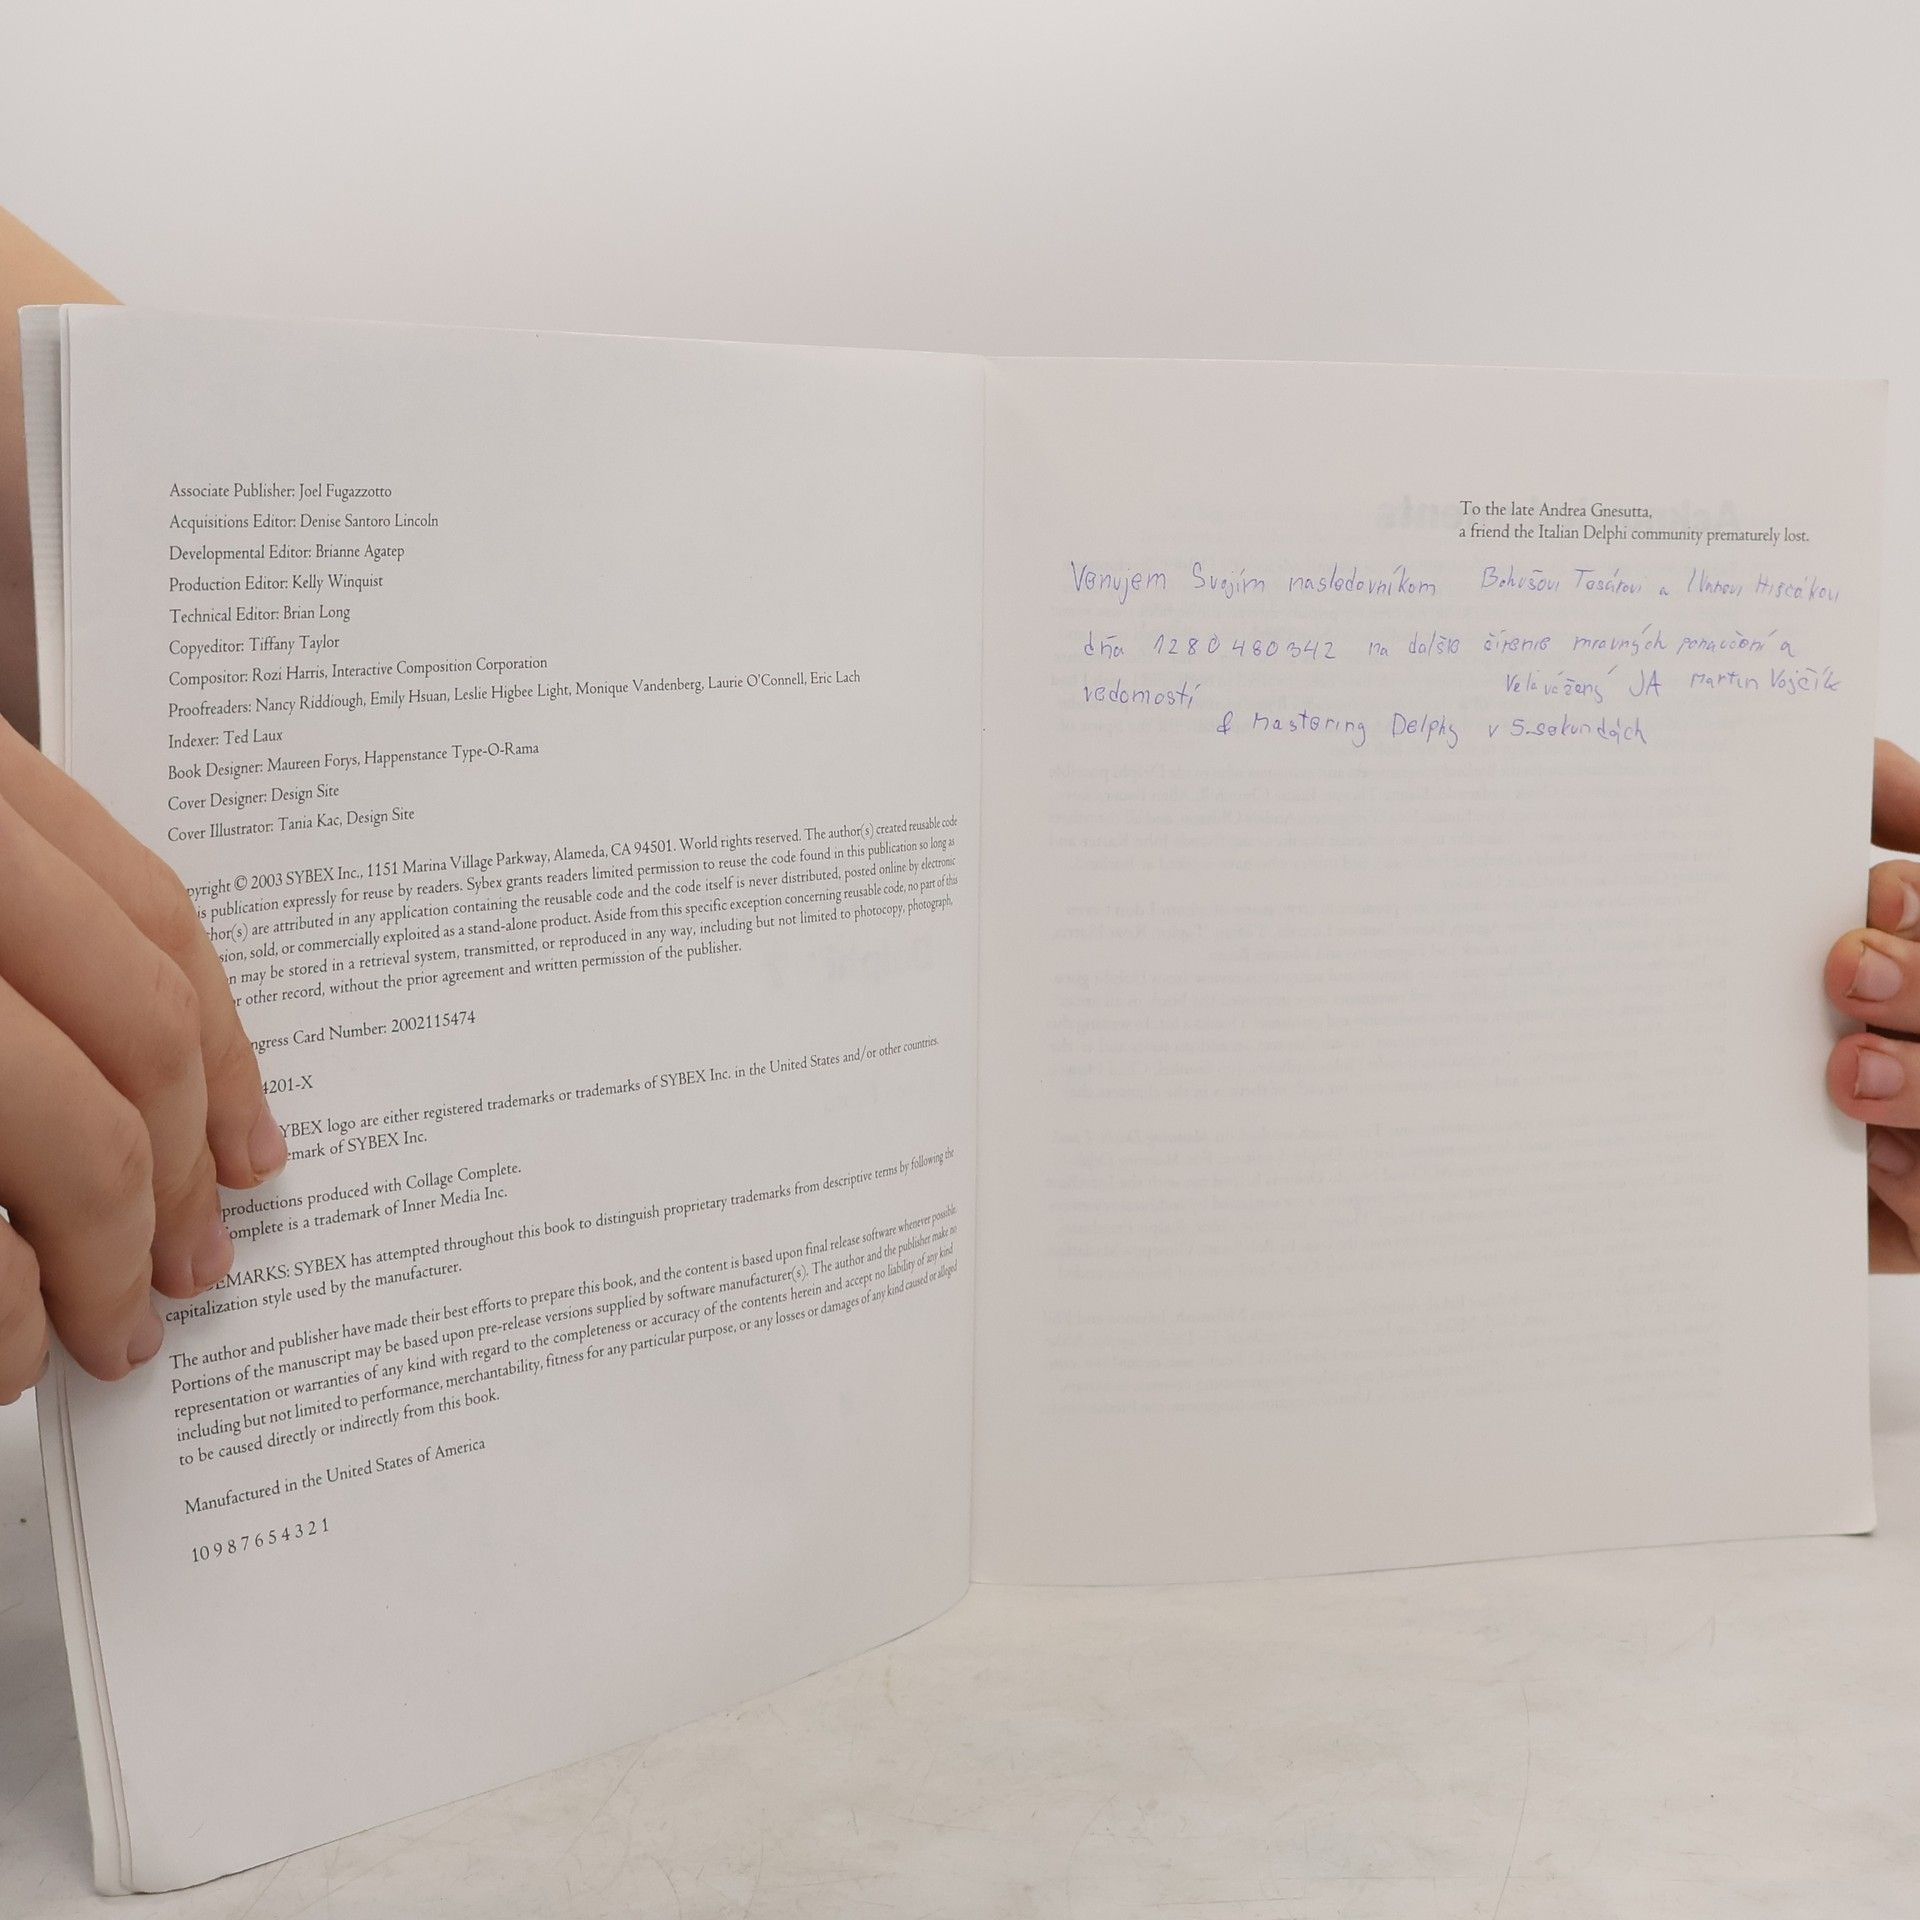 Associate Publisher: Joel Fugazzotto
Acquisitions Editor: Denise Santoro Lincoln
Developmental Editor: Brianne Agatep
Production Editor: Kelly Winquist
Technical Editor: Brian Long
Copyeditor: Tiffany Taylor
Compositor: Rozi Harris, Interactive Composition Corporation
Proofreaders: Nancy Riddiough, Emily Hsuan, Leslie Higbee Light, Monique Vandenberg, Laurie O'Connell, Eric Lach
Indexer: Ted Laux
Book Designer: Maureen Forys, Happenstance Type-O-Rama
Cover Designer: Design Site
Cover Illustrator: Tania Kac, Design Site
pyright © 2003 SYBEX Inc., 1151 Marina Village Parkway, Alameda, CA 94501. World rights reserved. The author(s) created reusable code
is publication expressly for reuse by readers. Sybex grants readers limited permission to reuse the code found in this publication so long as
hor(s) are attributed in any application containing the reusable code and the code itself is never distributed, posted online by electronic
sion, sold, or commercially exploited as a stand-alone product. Aside from this specific exception concerning reusable code, no part of this
n may be stored in a retrieval system, transmitted, or reproduced in any way, including but not limited to photocopy, photograph,
r other record, without the prior agreement and written permission of the publisher.
ngress Card Number: 2002115474
4201-X
YBEX logo are either registered trademarks or trademarks of SYBEX Inc. in the United States and/or other countries.
emark of SYBEX Inc.
productions produced with Collage Complete.
omplete is a trademark of Inner Media Inc.
EMARKS: SYBEX has attempted throughout this book to distinguish proprietary trademarks from descriptive terms by following the
capitalization style used by the manufacturer.
The author and publisher have made their best efforts to prepare this book, and the content is based upon final release software whenever possible.
Portions of the manuscript may be based upon pre-release versions supplied by software manufacturer(s). The author and the publisher make no
representation or warranties of any kind with regard to the completeness or accuracy of the contents herein and accept no liability of any kind
including but not limited to performance, merchantability, fitness for any particular purpose, or any losses or damages of any kind caused or alleged
to be caused directly or indirectly from this book.
Manufactured in the United States of America
10 9 8 7 6 5 4 3 2 1
To the late Andrea Gnesutta,
a friend the Italian Delphi community prematurely lost.
Venujem Svojím nasledovníkom Bohušovi a
dňa 1280480342 na ďalšie šírenie mravných ponaučení a
vedomostí Veľavážený JA Martin Vojčík
& Mastering Delphy v 5 sekundách